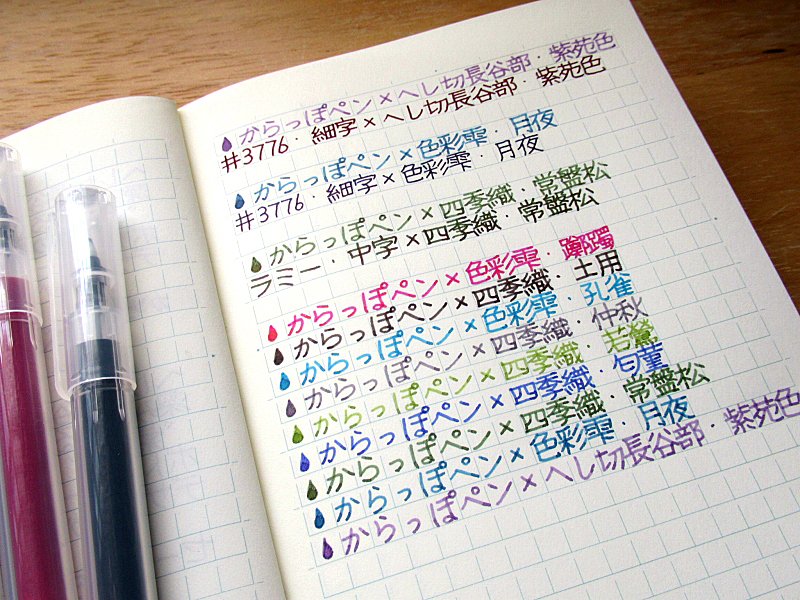 からっぽペン×へし切長谷部・紫苑色
#3776・細字×へし切長谷部・紫苑色
からっぽペン×色彩雫・月夜
#3776・細字×色彩雫・月夜
からっぽペン×四季織・常盤松
ラミー・中字×四季織・常盤松
からっぽペン×色彩雫・躑躅
からっぽペン×四季織・土用
からっぽペン×色彩雫・孔雀
からっぽペン×四季織・仲秋
からっぽペン×四季織・若鶯
からっぽペン×四季織・匂菫
からっぽペン×四季織・常盤松
からっぽペン×色彩雫・月夜
からっぽペン×へし切長谷部・紫苑色